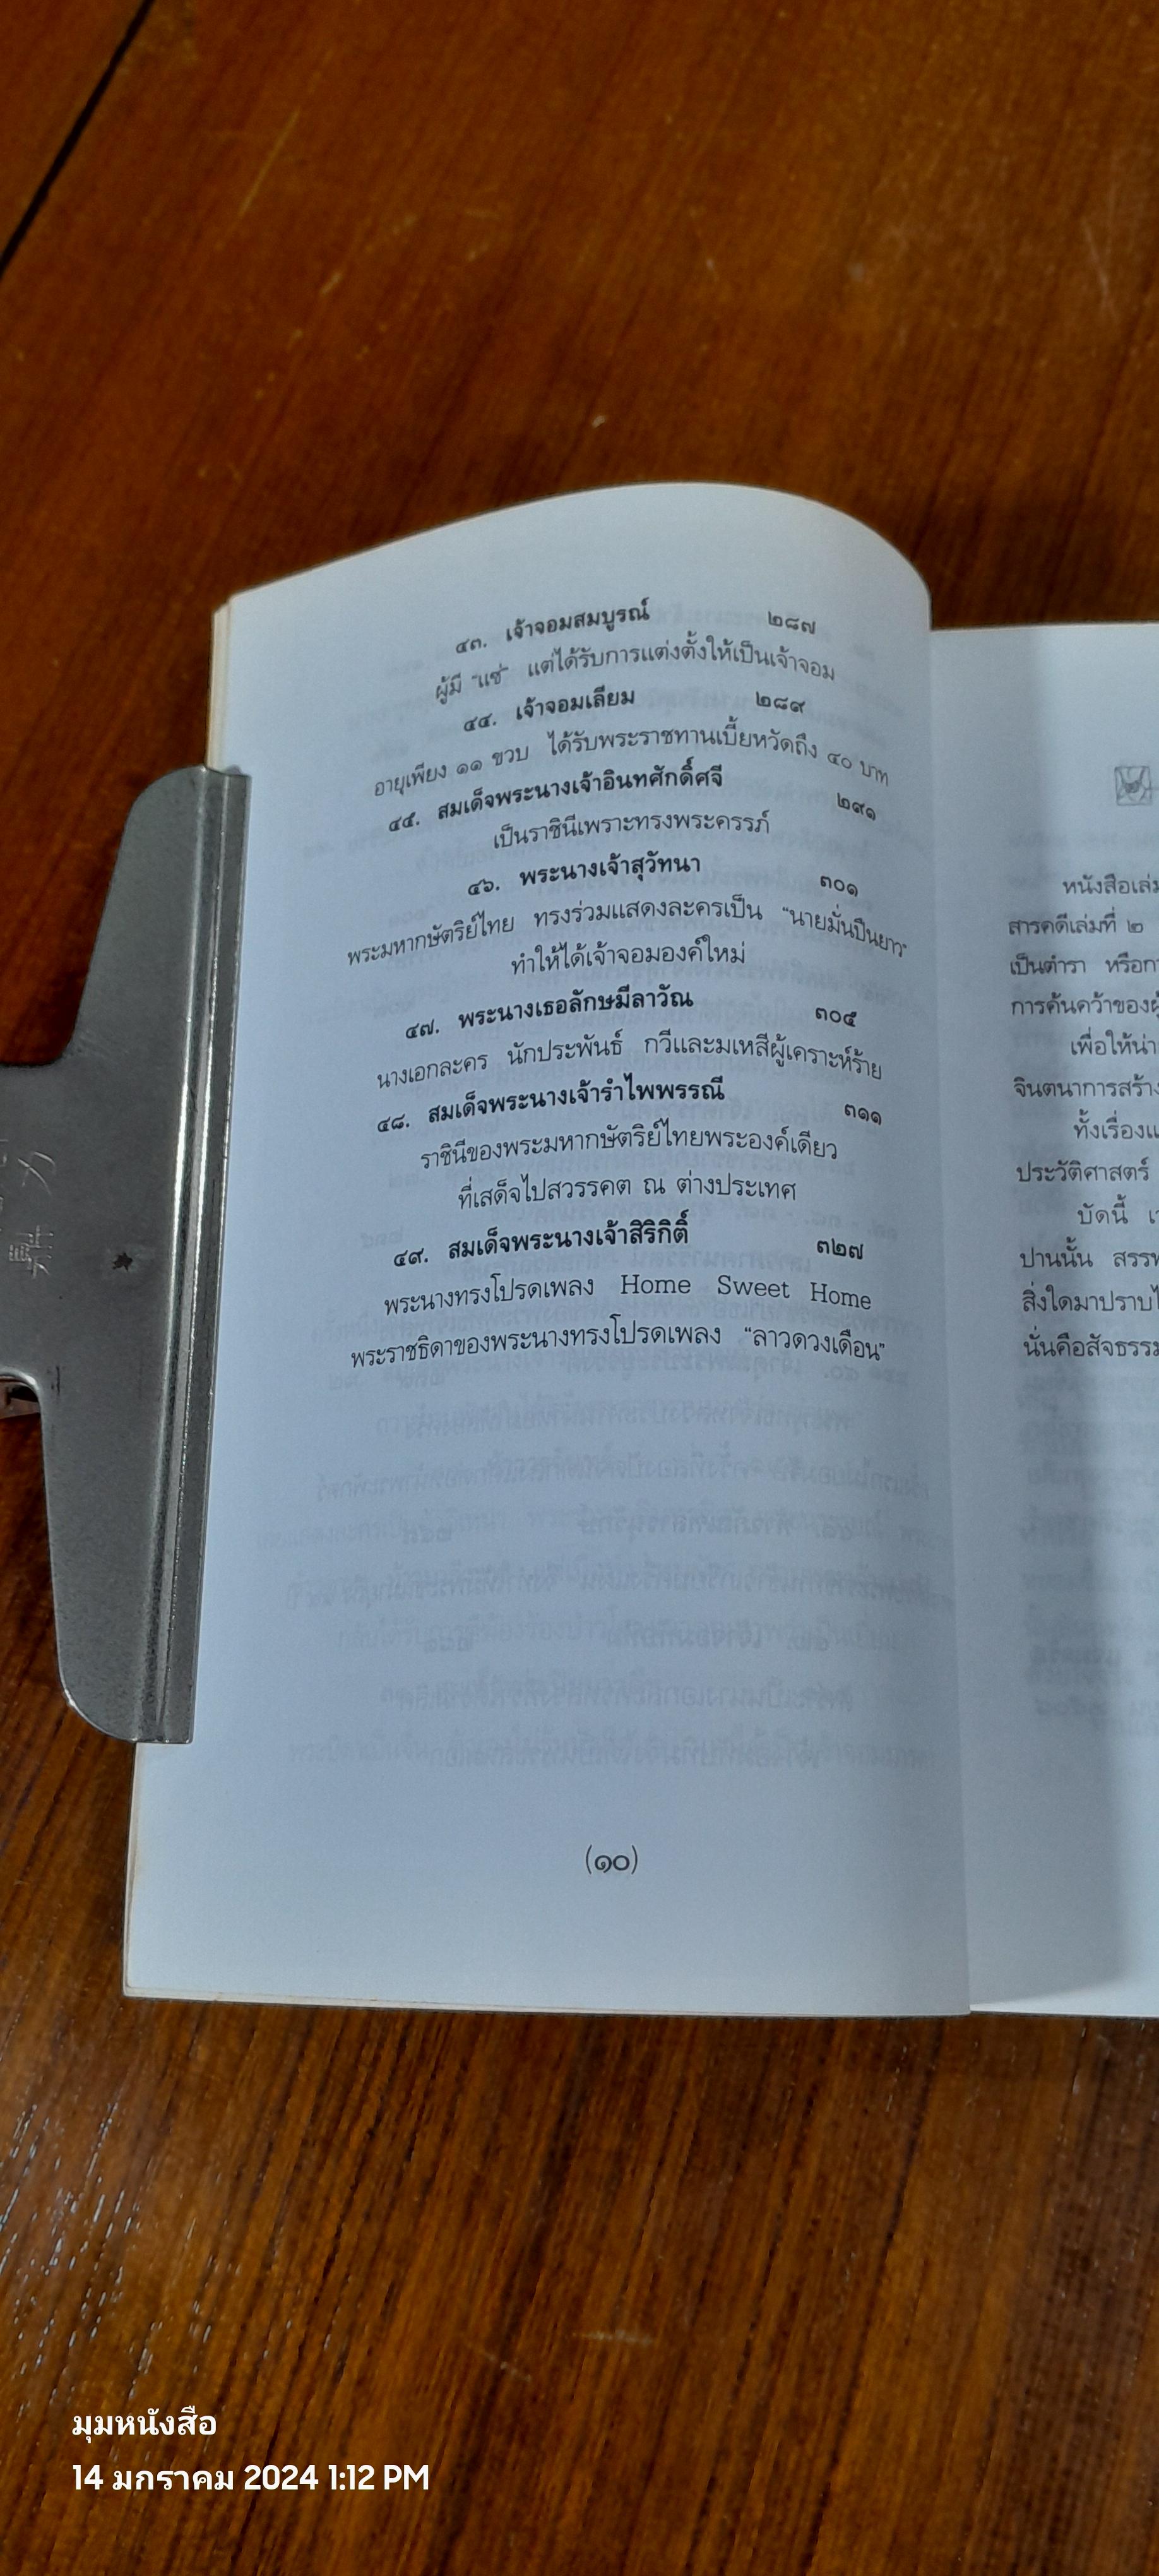 ๔๓. เจ้าจอมสมบูรณ์ ๒๘๗
ผู้มี "แซ่" แต่ได้รับการแต่งตั้งให้เป็นเจ้าจอม
๔๔. เจ้าจอมเลียม ๒๘๙
อายุเพียง ๑๑ ขวบ ได้รับพระราชทานเบี้ยหวัดถึง ๔๐ บาท
๔๕. สมเด็จพระนางเจ้าอินทศักดิ์ศจี ๒๙๑
เป็นราชินีเพราะทรงพระครรภ์
๔๖. พระนางเจ้าสุวัทนา ๓๐๑
พระมหากษัตริย์ไทย ทรงร่วมแสดงละครเป็น "นายมั่นปืนยาว"
ทำให้ได้เจ้าจอมองค์ใหม่
๔๗. พระนางเธอลักษมีลาวัณ ๓๐๕
นางเอกละคร นักประพันธ์ กวีและมเหสีผู้เคราะห์ร้าย
๔๘. สมเด็จพระนางเจ้ารำไพพรรณี ๓๑๑
ราชินีของพระมหากษัตริย์ไทยพระองค์เดียว
ที่เสด็จไปสวรรคต ณ ต่างประเทศ
๔๙. สมเด็จพระนางเจ้าสิริกิติ์ ๓๒๗
พระนางทรงโปรดเพลง Home Sweet Home
พระราชธิดาของพระนางทรงโปรดเพลง "ลาวดวงเดือน"
(๑๐)
หนังสือเล่ม
สารคดีเล่มที่ ๒
เป็นตำรา หรือกา
การค้นคว้าของผู้
เพื่อให้น่า
จินตนาการสร้าง
ทั้งเรื่องแ
ประวัติศาสตร์
บัดนี้ เว
ปานนั้น สรรพ
สิ่งใดมาปราบไ
นั่นคือสัจธรรม
มุมหนังสือ
14 มกราคม 2024 1:12 PM